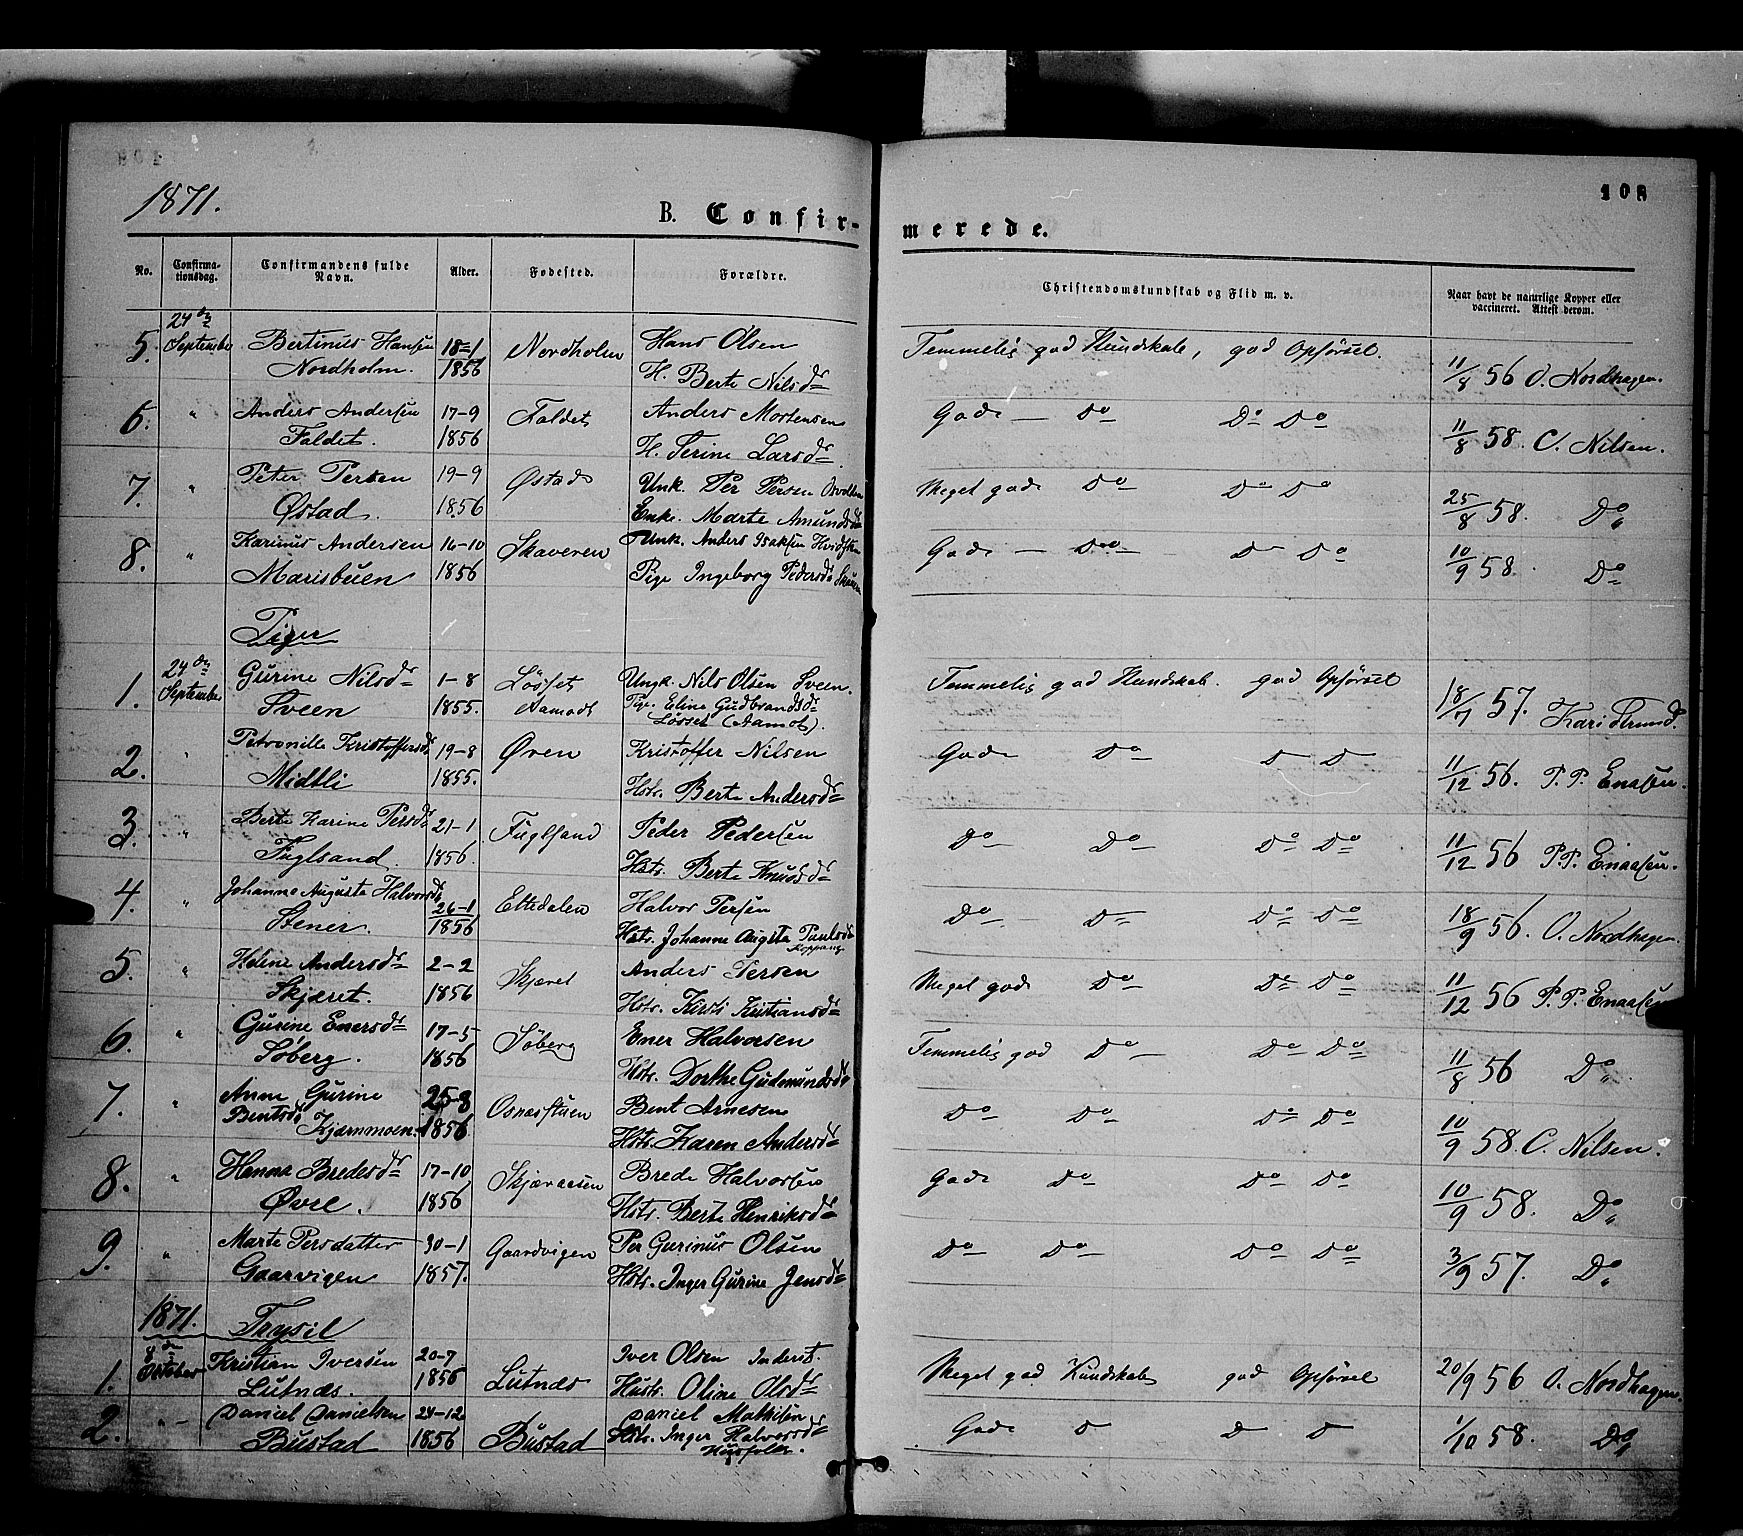 1871.
108
B. Confir-
merede.
No.
Confirma-
tionsdag.
Confirmandens fulde
Navn.
Alder.
Fødested.
Forældre.
Christendomskundskab og Flid m. v.
Naar havt de naturlige Kopper eller
vaccineret. Attest derom.
5. 24de September Bertinus Hansen Nordholm. 18-1 1856 Nordholm Hans Olsen H. Berte Nilsdr Temmelig god Kundskab, god Opførsel. 11/8 56 O. Nordhagen.
6. " Anders Andersen Faldet. 17-9 1856 Faldet Anders Mortensen H. Serine Larsdr Gode — Do Do Do 11/8 58. C. Nilsen.
7. " Peter Persen Østad. 19-9 1856 Østad Unk. Per Persen Enke. Marte Amundsdr Meget gode Do Do Do 25/8 58. Do
8. " Karinus Andersen Marisbuen 16-10 1856 Skaveren Unk. Anders Isaksen Pige Ingeborg Pedersdr Gode — Do — Do Do 10/9 58. Do
Piger
1. 24de September Gurine Nilsdr Sveen 1-8 1855. Løsset Aamodt Ungk. Nils Olsen Sveen. Pige. Eline Gudbrandsdr Løsset (Aamot). Temmelig god Kundskab. god Opførsel 18/7 57. Kari
2. " Petronille Kristoffersdr Midtli 19-8 1855. Øren Kristoffer Nilsen Hstr. Berte Andersdr Gode Do D D 11/12 56. P. P. Enaasen.
3. " Berte Karine Persdr Fuglsand. 21-1 1856. Fuglsand Peder Pedersen Hstr. Berte Knudsdr Do Do Do Do 11/12 56 P. P. Enaasen.
4. " Johanne Augusta Halvorsdr Stener. 26-1 1856 Eltedalen Halvor Persen Hstr. Johanne Augsta Paulsdr Koppang Do — D Do Do 18/9 56. O. Nordhagen.
5. " Helene Andersdr Skjæret. 2-2 1856 Skjæret Anders Persen Hstr. Kirsti Kristiansdr Meget gode Do Do Do 11/12 56 P. P. Enaasen
6. " Gurine Enersdr Søberg. 17-5 1856 Søberg Ener Halvorsen Hstr. Dorthe Gudmundsdr Temmelig god Do — Do Do 11/8 56 Do
7. " Anne Gurine Bentsdr Kjærnmoen. 25-8 1856 Osnæsstuen Bent Arnesen Hstr. Karen Andersdr Do Do Do Do 10/9 58 C. Nilsen.
8. " Hanna Bredesdr Øvre. 17-10 1856 Skjæraasen Brede Halvorsen Hstr. Berte Henriksdr Gode Do Do Do 10/9 58. Do
9. " Marte Persdatter Gaarvigen 30-1 1857. Gaardvigen Per Gurinus Olsen Hstr. Inger Gurine Jensdr Do Do Do Do 3/9 57. Do
1871. Trysil
1. 8de October Kristian Iversen Lutnæs. 20-7 1856 Lutnæs Iver Olsen Inderst. Hustr. Oline Olsdr Meget god Kundskab god Opførsel 20/9 56 O. Nordhagen.
2. " Daniel Danielsen Bustad 24-12 1856 Bustad Daniel Mathisen Hstr. Inger Halvorsdr Husfolk. Gode D D D 1/10 58. Do